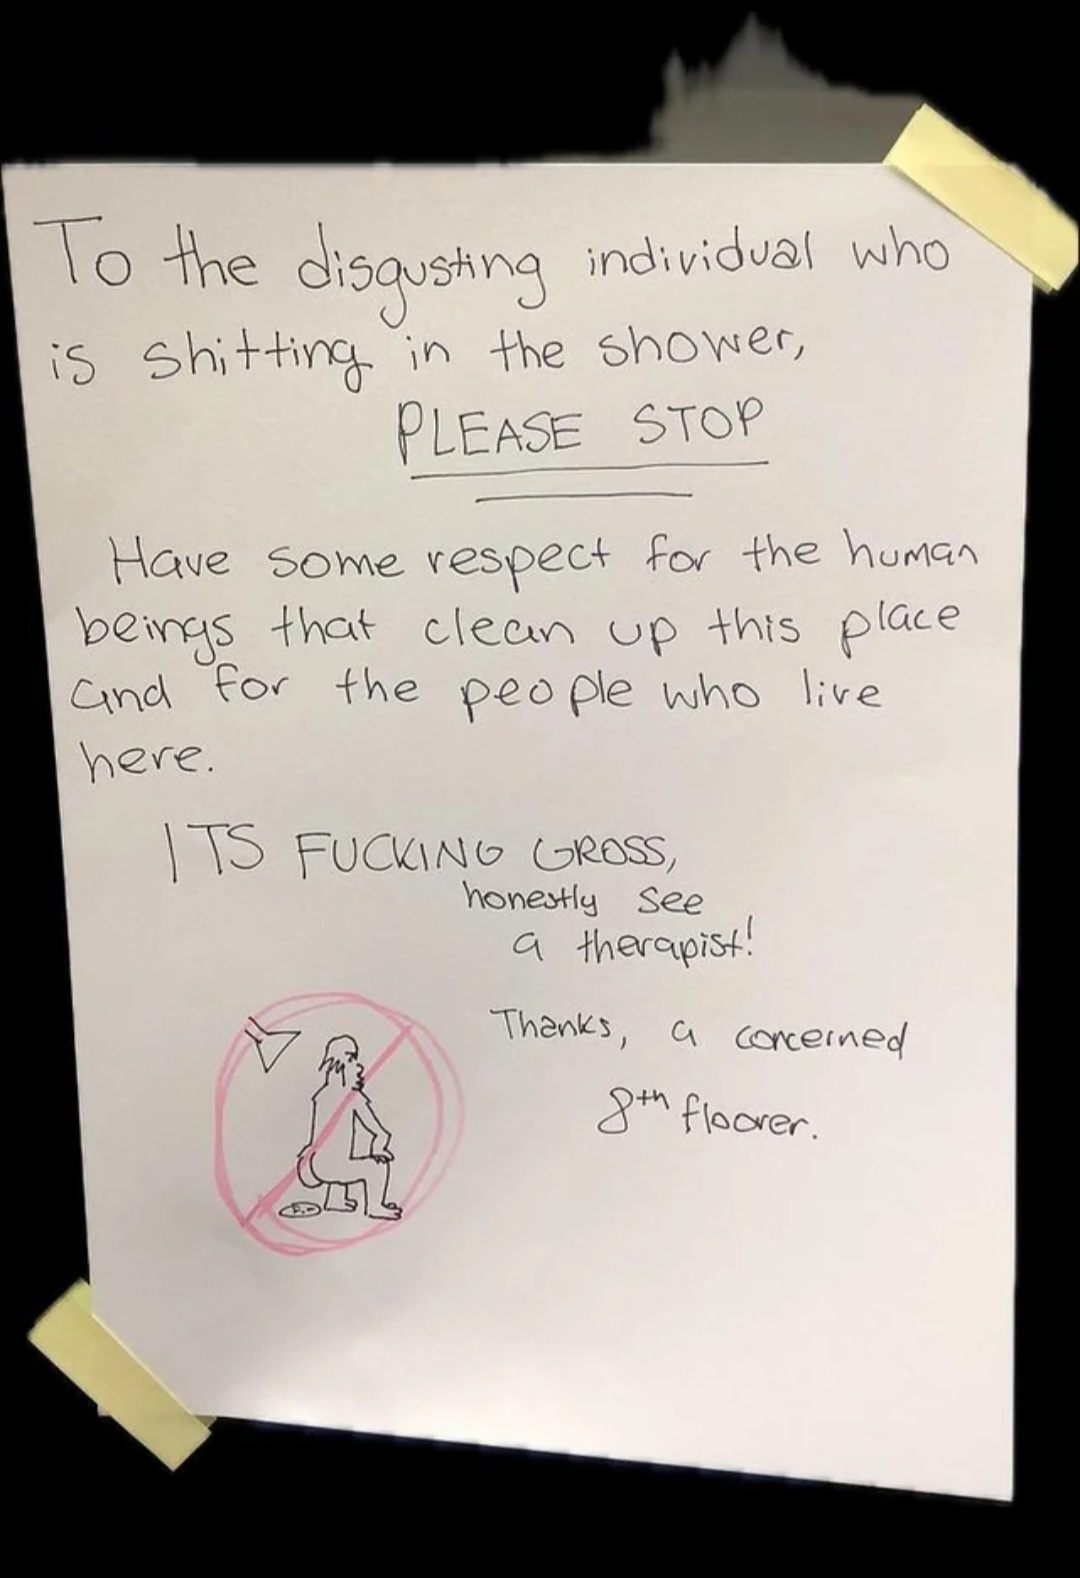 To the disgusting individual who
is shitting in the shower,
PLEASE STOP
Have some respect for the human
beings that clean up this place
and for the people who live
here.
ITS FUCKING GROSS,
honestly see
a therapist!
Thanks, a concerned
8th floorer.